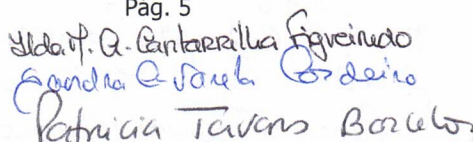 Pág. 5
Ilda M. G. Cantarrilha Figueiredo
Sandra G. Varela Cordeiro
Patricia Tavares Barcelos